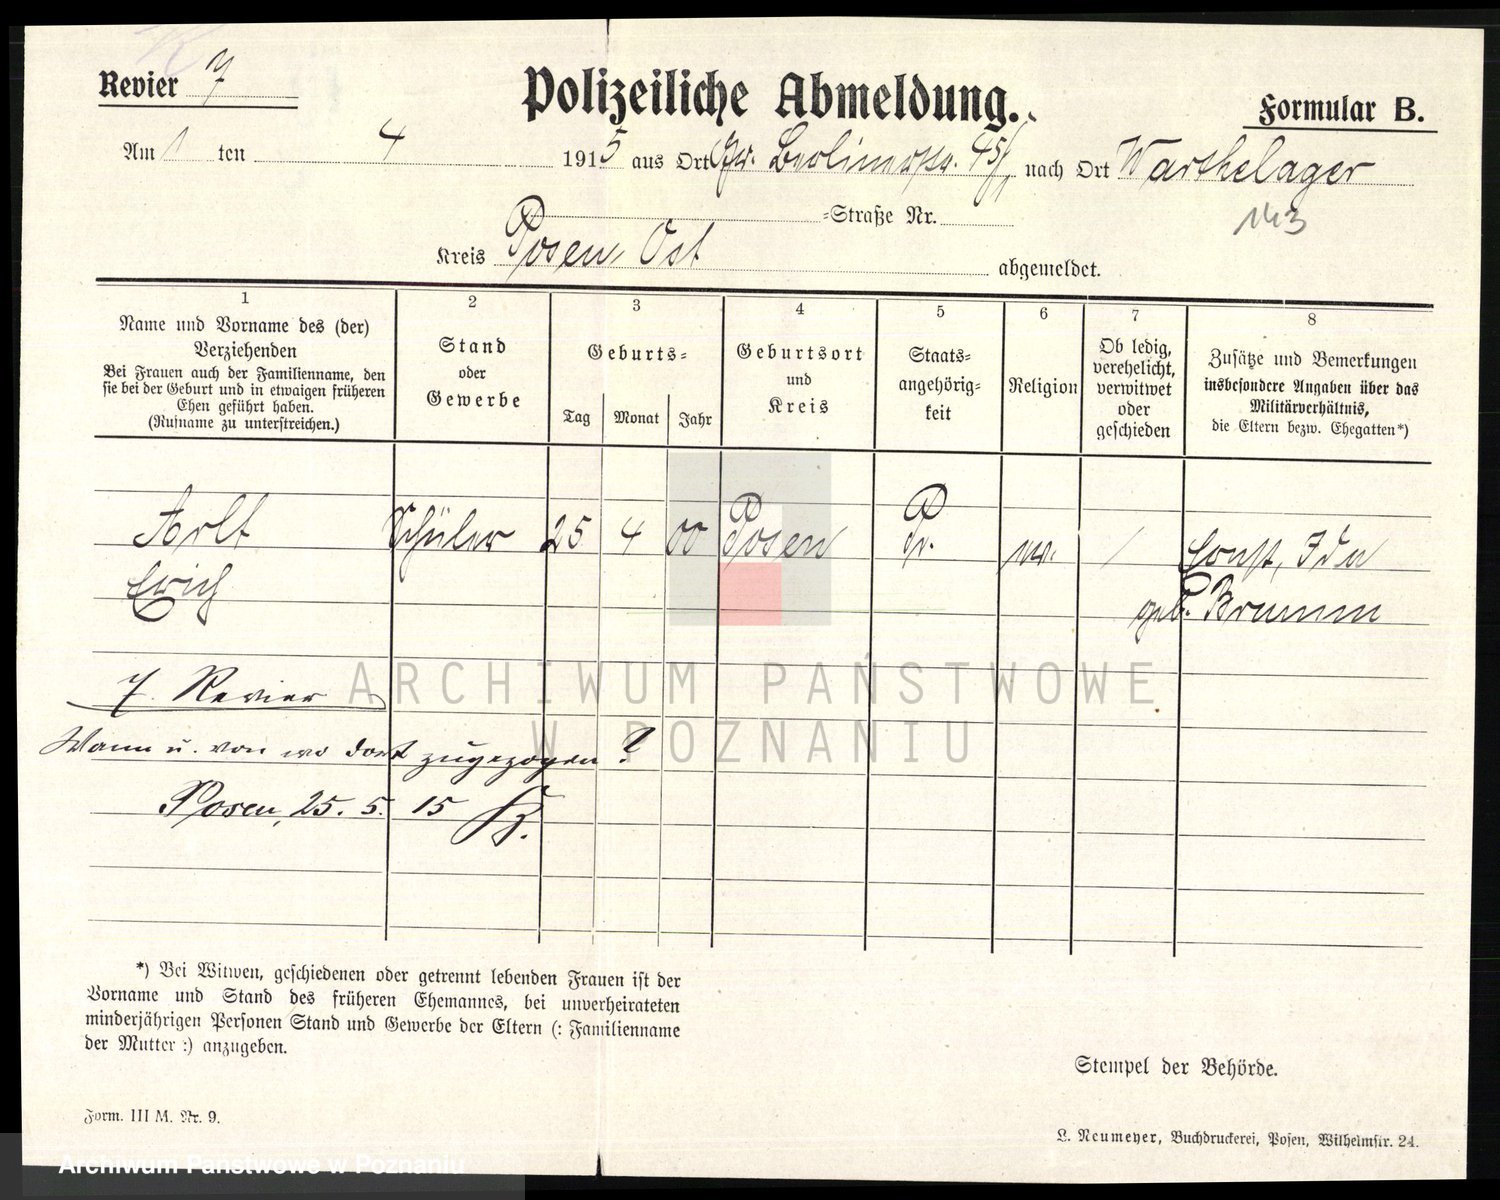 Revier 7
Polizeiliche Abmeldung.
Formular B.
Am 1 ten 4 1915 aus Ort Gr. Berlinerstr. 45 nach Ort Warthelager
-Straße Nr.
143
Kreis Posen Ost abgemeldet.
1 2 3 4 5 6 7 8
Name und Vorname des (der)
Verziehenden
Bei Frauen auch der Familienname, den
sie bei der Geburt und in etwaigen früheren
Ehen geführt haben.
(Rufname zu unterstreichen.)
Stand
oder
Gewerbe
Geburts-
Tag Monat Jahr
Geburtsort
und
Kreis
Staats-
angehörig-
keit
Religion
Ob ledig,
verehelicht,
verwitwet
oder
geschieden
Zusätze und Bemerkungen
insbesondere Angaben über das
Militärverhältnis,
die Eltern bezw. Ehegatten*)
Arlt Schüler 25 4 00 Posen Pr. Ernst, Ida
Erich geb. Brumm
7. Revier
Wann u. von wo dort zugezogen?
Posen, 25. 5. 15
ARCHIWUM PAŃSTWOWE
W POZNANIU
*) Bei Witwen, geschiedenen oder getrennt lebenden Frauen ist der
Vorname und Stand des früheren Ehemannes, bei unverheirateten
minderjährigen Personen Stand und Gewerbe der Eltern (: Familienname
der Mutter :) anzugeben.
Stempel der Behörde.
Form. III M. Nr. 9.
L. Neumeyer, Buchdruckerei, Posen, Wilhelmstr. 24.
Archiwum Państwowe w Poznaniu